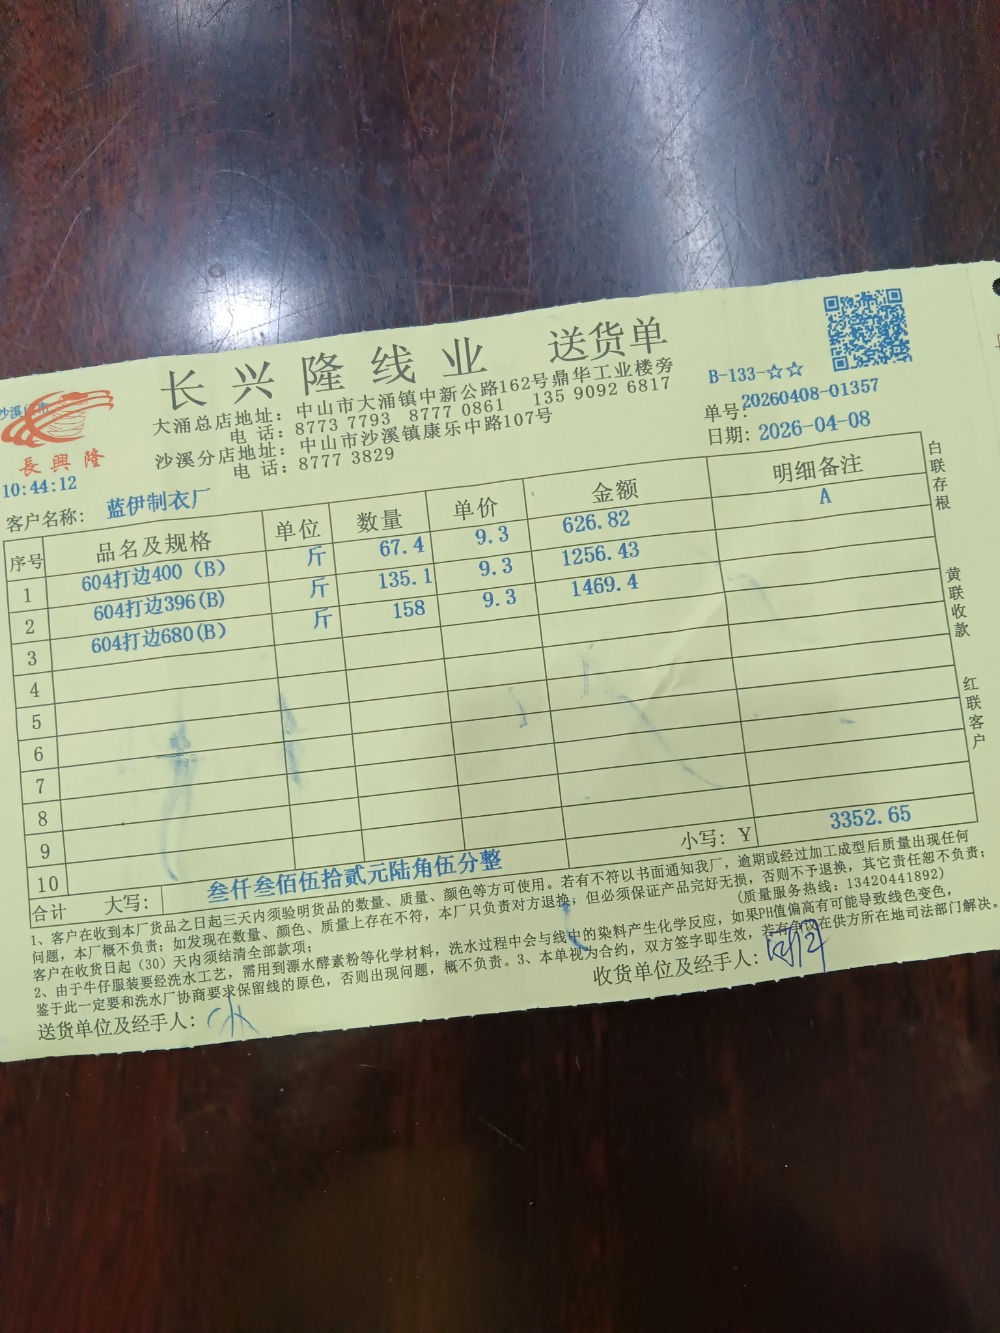 长兴隆线业 送货单
大涌总店地址：中山市大涌镇中新公路162号鼎华工业楼旁
电 话：8773 7793 8777 0861 135 9092 6817
沙溪分店地址：中山市沙溪镇康乐中路107号
电 话：8777 3829
B-133-☆☆
单号：20260408-01357
日期：2026-04-08
長興隆
10:44:12
客户名称：蓝伊制衣厂
序号 品名及规格 单位 数量 单价 金额 明细备注
1 604打边400（B） 斤 67.4 9.3 626.82 A
2 604打边396(B) 斤 135.1 9.3 1256.43
3 604打边680(B) 斤 158 9.3 1469.4
4
5
6
7
8
9
10
合计 大写：叁仟叁佰伍拾贰元陆角伍分整 小写：Y 3352.65
白联存根
黄联收款
红联客户
1、客户在收到本厂货品之日起三天内须验明货品的数量、质量、颜色等方可使用。若有不符以书面通知我厂，逾期或经过加工成型后质量出现任何
问题，本厂概不负责；如发现在数量、颜色、质量上存在不符，本厂只负责对方退换，但必须保证产品完好无损，否则不予退换，其它责任恕不负责；
客户在收货日起（30）天内须结清全部款项； (质量服务热线：13420441892)
2、由于牛仔服装要经洗水工艺，需用到漂水酵素粉等化学材料，洗水过程中会与线中的染料产生化学反应，如果PH值偏高有可能导致线色变色，
鉴于此一定要和洗水厂协商要求保留线的原色，否则出现问题，概不负责。3、本单视为合约，双方签字即生效，若有争议在供方所在地司法部门解决。
送货单位及经手人：
收货单位及经手人：